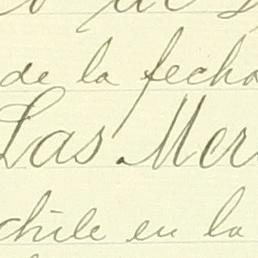 de la fecha
Las Mer
chile en la